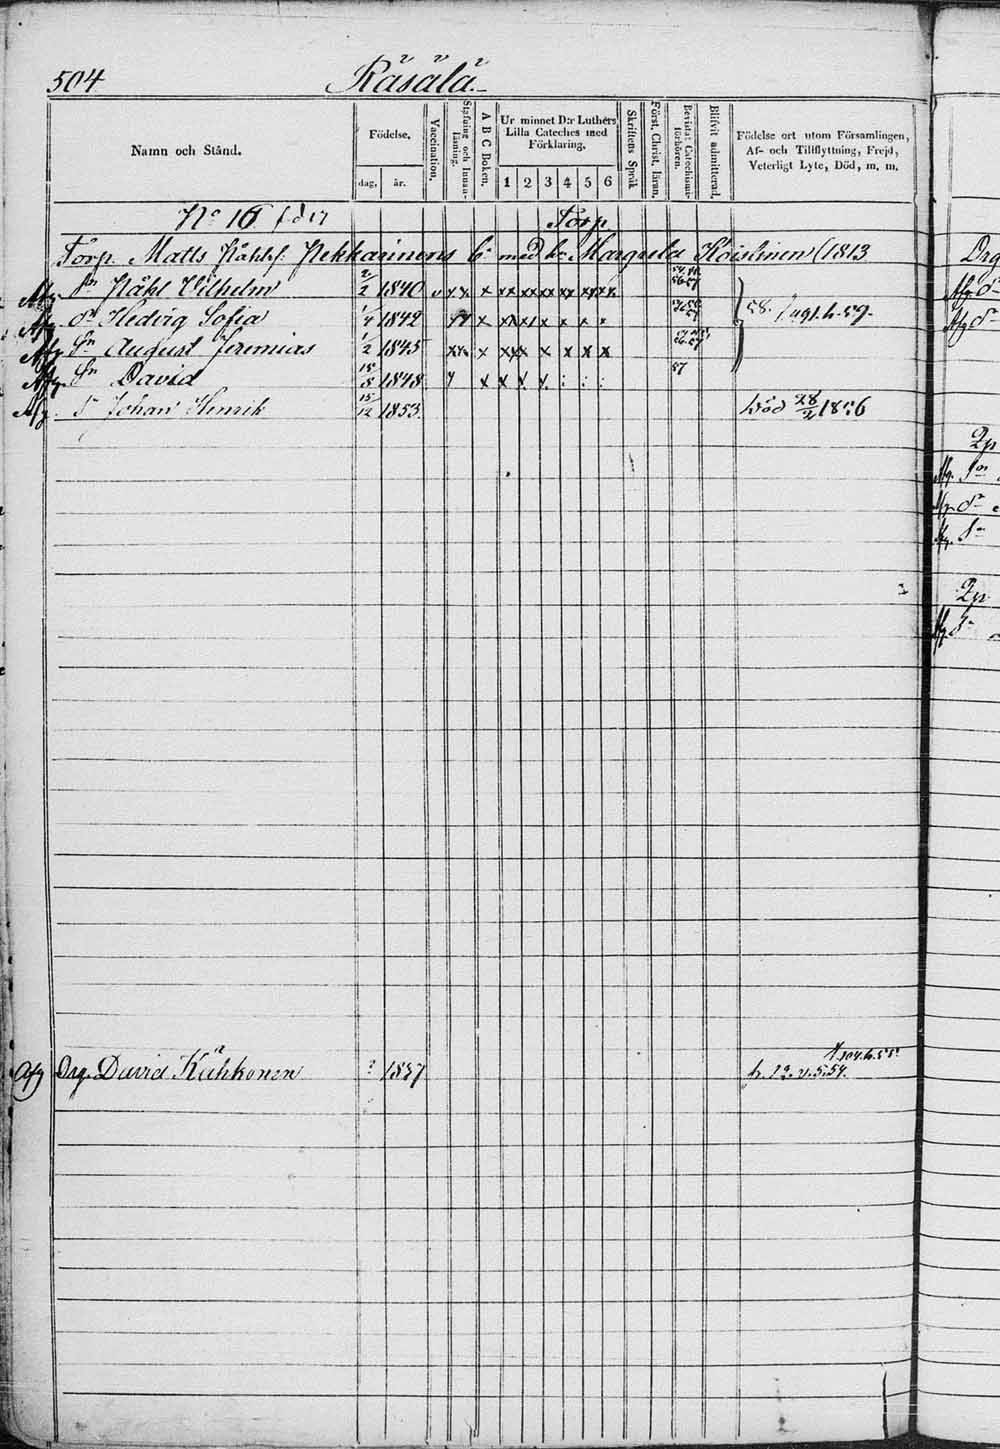 504 Räsälä.
Namn och Stånd.
Födelse,
dag, år.
Vaccination.
Stafning och Innan-läsning.
A B C Boken.
Ur minnet D:r Luthers
Lilla Cateches med
Förklaring.
1 2 3 4 5 6
Skriftens Språk
Först. Christ. läran.
Bevistat Catechismi-förhören.
Blifvit admitterad.
Födelse ort utom Församlingen,
Af- och Tillflyttning, Frejd,
Veterligt Lyte, Död, m. m.
No 16 Torp
Torp. Matts Påhlsf. Pekkarinens b: med h: Margreta Koistinen (1813
Afg Sn Påhl Vilhelm 2/2 1840 v x x x x x x x x x x x x x
Afg dr Hedvig Sofia 1/4 1842 x x x x x x x x x 58.
Afg Sn August Jeremias 1/2 1845 x x x x x x x x x
Afg. Sn David 15/8 1848 x x x x x : : : 57
Afg. S Johan Henrik 15/12 1853 Död 28/2 1856
Afg Drg. David Kähkönen ? 1837